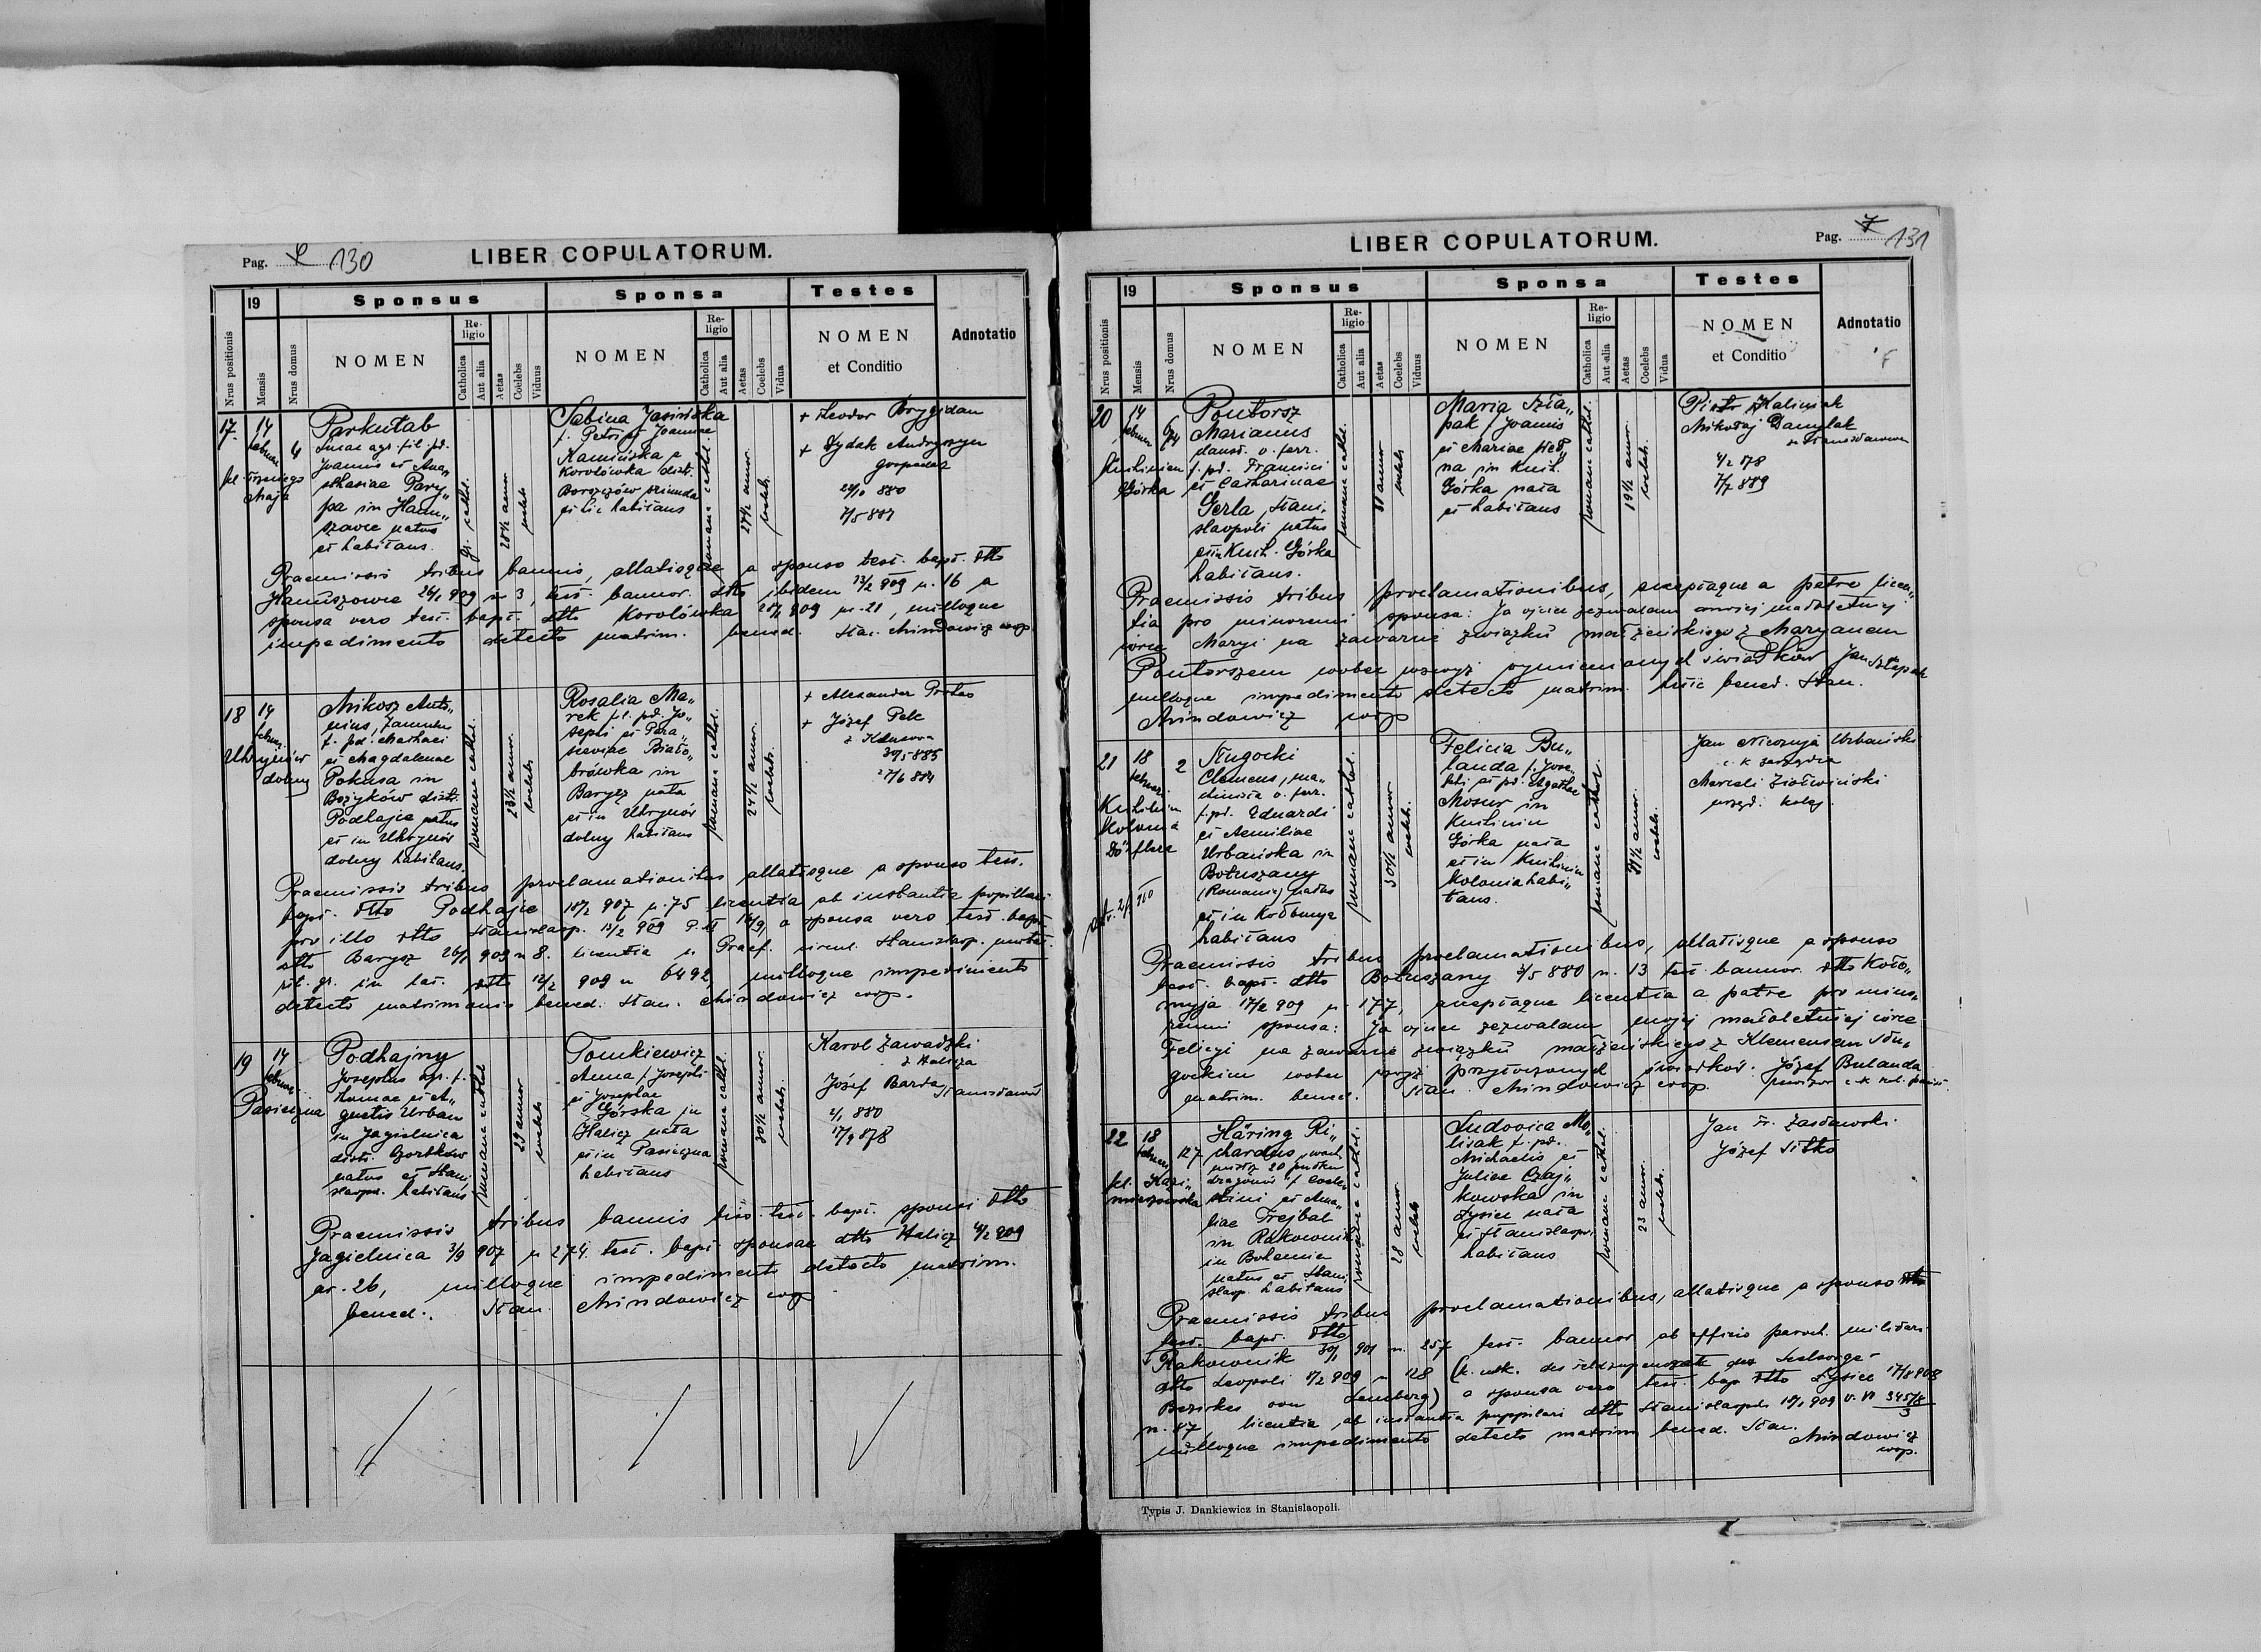 Pag. 130
LIBER COPULATORUM.
19
Sponsus
Sponsa
Testes
Nrus positionis
Mensis
Nrus domus
NOMEN
Religio
Catholica
Aut alia
Aetas
Coelebs
Viduus
NOMEN
Religio
Catholica
Aut alia
Aetas
Coelebs
Vidua
NOMEN
et Conditio
Adnotatio
17.
14
februar.
4
pl. Trzeciego
Maja
Parkutab
Lucas agr. fil. pd.
Joannis et Ana„
sthasiae Pary„
pa in Hanu„
szowce natus
et habitans.
gr. cathol.
28½ annor.
coelebs
Sabina Jasińska
f. Petri et Joannae
Kamińska e
Korolówka distr.
Borszczów oriunda
et hic habitans
romano cathol.
27½ annor.
coelebs.
+ Teodor Brygidan
+ Dydak Andryszyn
gospodarz
880
Praemissis tribus bannis, allatisque a sponso test. bapt. dtto
Hanuszowce 26/1 909 n 3, test. bannor. dtto ibidem 13/2 909 n. 16 a
sponsa vero test. bapt. dtto Korolówka 909 nr. 21, nulloque
impedimento detecto matrim. bened. Stan. Mindowicz coop.
18
14
februar.
Uhryńów
dolny
Mikosz Anto„
nius, famulus
f. pd. Mathaei
et Magdalenae
Pokusa in
Bożyków distr.
Podhajce natus
et in Uhrynów
dolny habitans.
romano cathol.
23½ annor.
coelebs.
Rosalia Ma„
rek f. l. pd. Jo„
sephi et Para„
sceviae Biało„
brówka in
Barysz nata
et in Uhrynów
dolny habitans
romano cathol.
24½ annor.
coelebs.
+ Alexander Protas
+ Józef Pelc
30/5 885
27/6 884
Praemissis tribus proclamationibus allatisque a sponso test.
bapt. dtto Podhajce 18/2 907 n. 75 licentia ab instantia pupillari
pro illo dtto Stanislaop. 13/2 909 P. VI 16/9, a sponsa vero test. bapt.
dtto Barysz 26/1 909 n 8. licentia a Praef. circul. Stanislaop.
rit. gr. in lat. dtto 12/2 909 n 6492, nulloque impedimento
detecto matrimonio bened. Stan. Mindowicz coop.
19
14
februar.
Pasieczna
Podhajny
Josephus agr. f.
Thomae et A„
gnetis Urban
in Jagielnica
distr. Czortków
natus et Stani„
slaopol. habitans
romano cathol.
29 annor.
coelebs
Tomkiewicz
Anna f. Josephi
et Josephae
Górska in
Halicz nata
et in Pasieczna
habitans
romano cathol.
30½ annor.
coelebs.
Karol Zawadzki
z Halicza
Józef Barda
Stanisławów
2/1 880
17/9 878
Praemissis tribus bannis test. bapt. sponsi dtto
Jagielnica 3/9 907 n 274. test. bapt. sponsae dtto Halicz 4/2 909
nr. 26, nulloque impedimento detecto matrim.
bened. Stan. Mindowicz coop
Pag. 7 131
LIBER COPULATORUM.
19
Sponsus
Sponsa
Testes
Nrus positionis
Mensis
Nrus domus
NOMEN
Religio
Catholica
Aut alia
Aetas
Coelebs
Viduus
NOMEN
Religio
Catholica
Aut alia
Aetas
Coelebs
Vidua
NOMEN
et Conditio
Adnotatio
20
14
februar
Knihinin
Górka
Pontorsz
Marianus
f. pd. Francisci
et Catharinae
Gerla, Stani„
slaopoli natus
et in Knih. Górka
habitans.
romano cathol.
31 annor
coelebs
Maria Szła„
pak f. Joannis
et Mariae
na in Knih.
Górka nata
et habitans
romano cathol.
19½ annor.
coelebs.
Piotr Kaliniak
Mikołaj Danylak
ze Stanisławowa
4/2 878
7/7 889
Praemissis tribus proclamationibus, acceptaque a patre licen„
tia pro minorenni sponsa: Ja ojciec zezwalam mojej małoletniej
córce Maryi na zawarcie związku małżeńskiego z Maryanem
Pontorszem wobec powyż wymienionych świadków Jan Szłapak
nulloque impedimento detecto matrim. huic bened. Stan.
Mindowicz coop
21
18
februar.
2
Knihinin
Kolonia
Dörflera
Długocki
Clemens, ma„
chinista v. ferr.
f. pd. Eduardi
et Aemiliae
Urbańska in
Botuszany
(Romania) natus
et in Kołomyja
habitans
romano cathol.
30½ annor
coelebs.
Felicia Bu„
landa f. Jose„
phi et pd. Agathae
Mosur in
Knihinin
Górka nata
et in Knihinin
Kolonia habi„
tans.
romano cathol.
21½ annor.
coelebs.
Jan Urbański
c. k
Marceli Ziołwiński
urzęd. kolej.
Praemissis tribus proclamationibus, allatisque a sponso
test. bapt. dtto Botuszany 2/5 880 n. 13 test. bannor. dtto Koło„
myja 17/2 909 n 177, acceptaque licentia a patre pro mino„
renni sponsa: Ja ojciec zezwalam mojej małoletniej córce
Felicyi na zawarcie związku małżeńskiego z Klemensem Dłu„
gockim wobec powyż przytoczonych świadków. Józef Bulanda
matrim. bened. Stan. Mindowicz coop. rewizor c. k. kol. państ.
22
18
februar
127
pl. Kazi„
mierzowska
Häring Ri„
chardus, wach„
mistrz 20 pułku
dragonów f. Coele„
stini et Ama„
liae Trejbal
in Rakownik
in Bohemia
natus et Stani„
slaop. habitans
romano cathol.
28 annor.
coelebs
Ludovica Mo„
lisak f. pd.
Michaelis et
Juliae Czaj„
kowska in
Łysiec nata
et Stanislaopoli
habitans
romano cathol.
23 annor.
coelebs.
Jan Fr. Zasławski.
Józef Sitko
Praemissis tribus proclamationibus, allatisque a sponso
test. bapt. dtto
Rakownik 30/1 901 n. 257 test. bannor ab officio paroch. militari
dtto Leopoli 8/2 909 n 128 (k. u. k. des Seelsorge-
Bezirkes von Lemberg) a sponsa vero test. bap. dtto Łysiec 17/8 908
n. 87, licentia ab instantia pupillari dtto Stanislaopoli 909 V. VI 345/8
nulloque impedimento detecto matrim. bened. Stan.
Mindowicz
coop.
Typis J. Dankiewicz in Stanislaopoli.